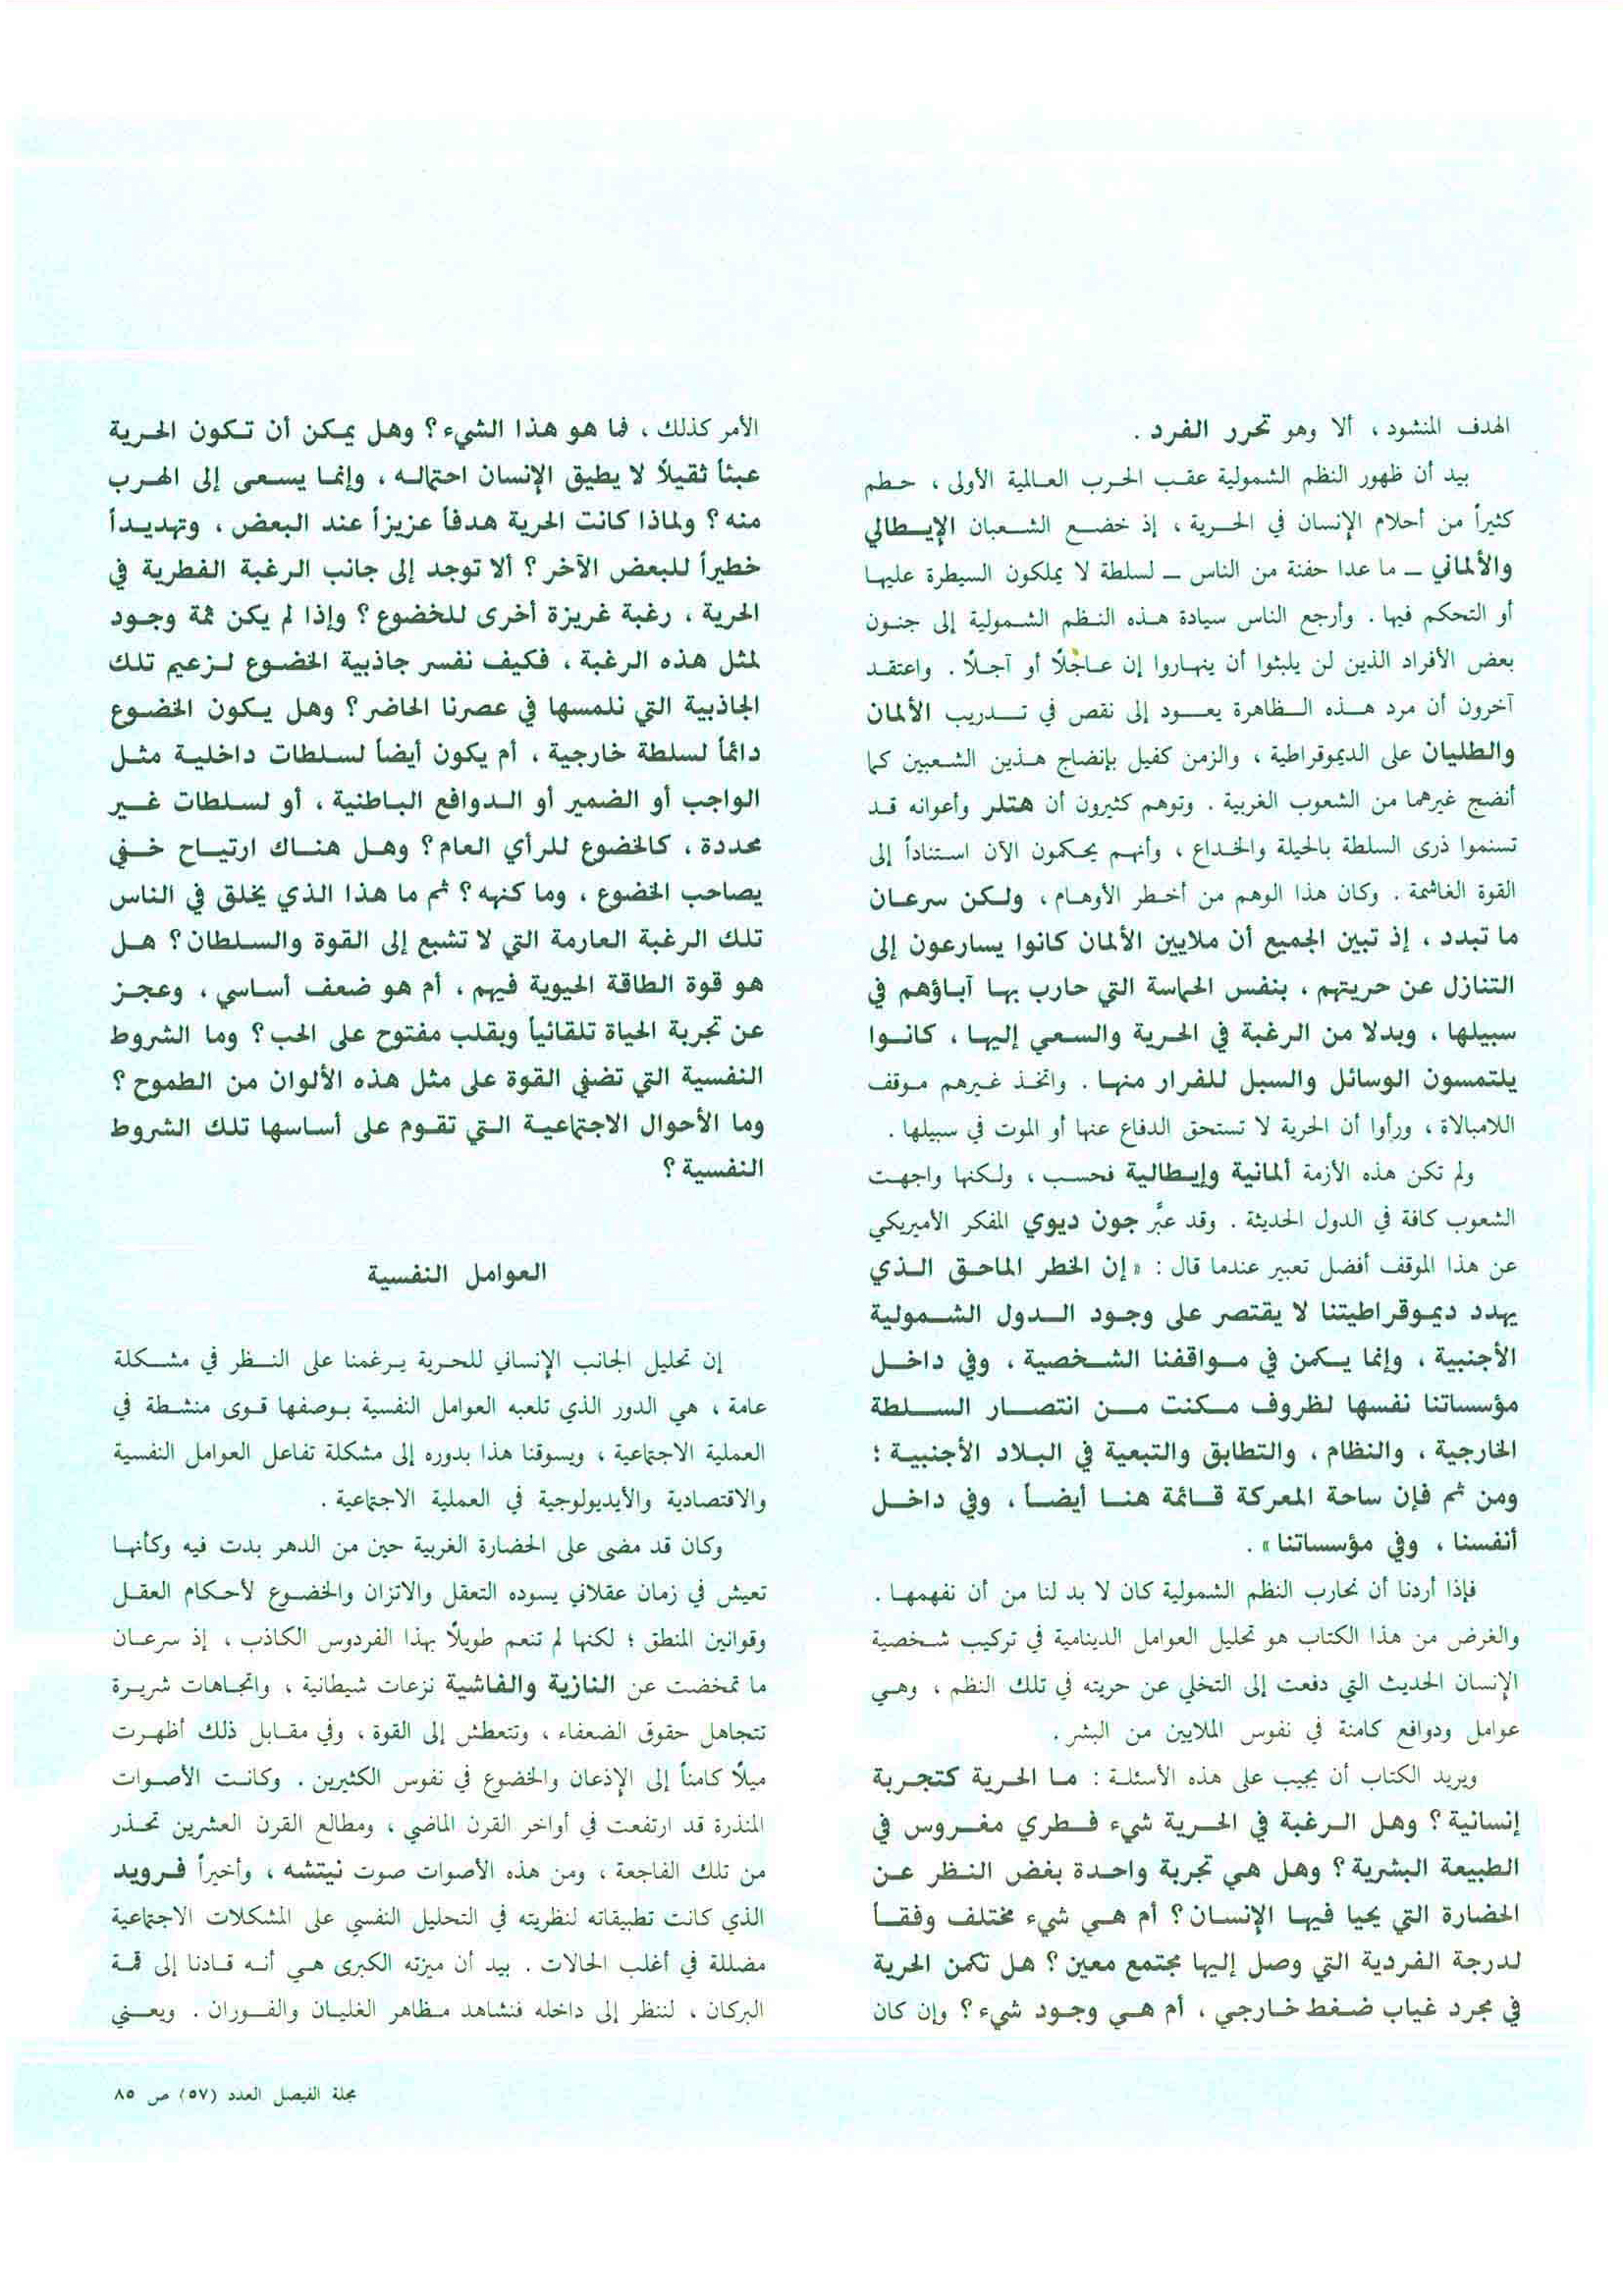 الهدف المنشود ، ألا وهو تحرر الفرد .
بيد أن ظهور النظم الشمولية عقب الحرب العالمية الأولى ، حطم
كثيراً من أحلام الإنسان في الحرية ، إذ خضع الشعبان الإيطالي
والألماني – ما عدا حفنة من الناس – لسلطة لا يملكون السيطرة عليها
أو التحكم فيها . وأرجع الناس سيادة هذه النظم الشمولية إلى جنون
بعض الأفراد الذين لن يلبثوا أن ينهاروا إن عاجلًا أو آجلًا . واعتقد
آخرون أن مرد هذه الظاهرة يعود إلى نقص في تدريب الألمان
والطليان على الديموقراطية ، والزمن كفيل بإنضاج هذين الشعبين كما
أنضج غيرهما من الشعوب الغربية . وتوهم كثيرون أن هتلر وأعوانه قد
تسنموا ذرى السلطة بالحيلة والخداع ، وأنهم يحكمون الآن استناداً إلى
القوة الغاشمة . وكان هذا الوهم من أخطر الأوهام ، ولكن سرعان
ما تبدد ، إذ تبين الجميع أن ملايين الألمان كانوا يسارعون إلى
التنازل عن حريتهم ، بنفس الحماسة التي حارب بها آباؤهم في
سبيلها ، وبدلا من الرغبة في الحرية والسعي إليها ، كانوا
يلتمسون الوسائل والسبل للفرار منها . واتخذ غيرهم موقف
اللامبالاة ، ورأوا أن الحرية لا تستحق الدفاع عنها أو الموت في سبيلها .
ولم تكن هذه الأزمة ألمانية وإيطالية فحسب ، ولكنها واجهت
الشعوب كافة في الدول الحديثة . وقد عبَّر جون ديوي المفكر الأميريكي
عن هذا الموقف أفضل تعبير عندما قال : « إن الخطر الماحق الذي
يهدد ديموقراطيتنا لا يقتصر على وجود الدول الشمولية
الأجنبية ، وإنما يكمن في مواقفنا الشخصية ، وفي داخل
مؤسساتنا نفسها لظروف مكنت من انتصار السلطة
الخارجية ، والنظام ، والتطابق والتبعية في البلاد الأجنبية ؛
ومن ثم فإن ساحة المعركة قائمة هنا أيضاً ، وفي داخل
أنفسنا ، وفي مؤسساتنا » .
فإذا أردنا أن نحارب النظم الشمولية كان لا بد لنا من أن نفهمها .
والغرض من هذا الكتاب هو تحليل العوامل الدينامية في تركيب شخصية
الإنسان الحديث التي دفعت إلى التخلي عن حريته في تلك النظم ، وهي
عوامل ودوافع كامنة في نفوس الملايين من البشر .
ويريد الكتاب أن يجيب على هذه الأسئلة : ما الحرية كتجربة
إنسانية ؟ وهل الرغبة في الحرية شيء فطري مغروس في
الطبيعة البشرية ؟ وهل هي تجربة واحدة بغض النظر عن
الحضارة التي يحيا فيها الإنسان ؟ أم هي شيء مختلف وفقاً
لدرجة الفردية التي وصل إليها مجتمع معين ؟ هل تكمن الحرية
في مجرد غياب ضغط خارجي ، أم هي وجود شيء ؟ وإن كان
الأمر كذلك ، فما هو هذا الشيء ؟ وهل يمكن أن تكون الحرية
عبئاً ثقيلاً لا يطيق الإنسان احتماله ، وإنما يسعى إلى الهرب
منه ؟ ولماذا كانت الحرية هدفاً عزيزاً عند البعض ، وتهديداً
خطيراً للبعض الآخر ؟ ألا توجد إلى جانب الرغبة الفطرية في
الحرية ، رغبة غريزة أخرى للخضوع ؟ وإذا لم يكن ثمة وجود
لمثل هذه الرغبة ، فكيف نفسر جاذبية الخضوع لزعيم تلك
الجاذبية التي نلمسها في عصرنا الحاضر ؟ وهل يكون الخضوع
دائماً لسلطة خارجية ، أم يكون أيضاً لسلطات داخلية مثل
الواجب أو الضمير أو الدوافع الباطنية ، أو لسلطات غير
محددة ، كالخضوع للرأي العام ؟ وهل هناك ارتياح خفي
يصاحب الخضوع ، وما كنهه ؟ ثم ما هذا الذي يخلق في الناس
تلك الرغبة العارمة التي لا تشبع إلى القوة والسلطان ؟ هل
هو قوة الطاقة الحيوية فيهم ، أم هو ضعف أساسي ، وعجز
عن تجربة الحياة تلقائياً وبقلب مفتوح على الحب ؟ وما الشروط
النفسية التي تضفي القوة على مثل هذه الألوان من الطموح ؟
وما الأحوال الاجتماعية التي تقوم على أساسها تلك الشروط
النفسية ؟
العوامل النفسية
إن تحليل الجانب الإنساني للحرية يرغمنا على النظر في مشكلة
عامة ، هي الدور الذي تلعبه العوامل النفسية بوصفها قوى منشطة في
العملية الاجتماعية ، ويسوقنا هذا بدوره إلى مشكلة تفاعل العوامل النفسية
والاقتصادية والأيديولوجية في العملية الاجتماعية .
وكان قد مضى على الحضارة الغربية حين من الدهر بدت فيه وكأنها
تعيش في زمان عقلاني يسوده التعقل والاتزان والخضوع لأحكام العقل
وقوانين المنطق ؛ لكنها لم تنعم طويلاً بهذا الفردوس الكاذب ، إذ سرعان
ما تمخضت عن النازية والفاشية نزعات شيطانية ، واتجاهات شريرة
تتجاهل حقوق الضعفاء ، وتتعطش إلى القوة ، وفي مقابل ذلك أظهرت
ميلاً كامناً إلى الإذعان والخضوع في نفوس الكثيرين . وكانت الأصوات
المنذرة قد ارتفعت في أواخر القرن الماضي ، ومطالع القرن العشرين تحذر
من تلك الفاجعة ، ومن هذه الأصوات صوت نيتشه ، وأخيراً فرويد
الذي كانت تطبيقاته لنظريته في التحليل النفسي على المشكلات الاجتماعية
مضللة في أغلب الحالات . بيد أن ميزته الكبرى هي أنه قادنا إلى قمة
البركان ، لننظر إلى داخله فنشاهد مظاهر الغليان والفوران . ويعني
مجلة الفيصل العدد (٥٧) ص ٨٥